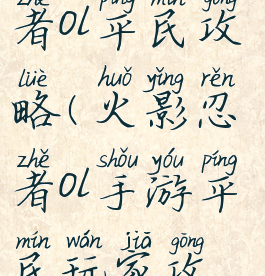 zhě píng mín gōng
者ol平民攻
lüè huǒ yǐng rěn
略(火影忍
zhě shǒu yóu píng
者ol手游平
mín wán jiā gōng
民玩家攻